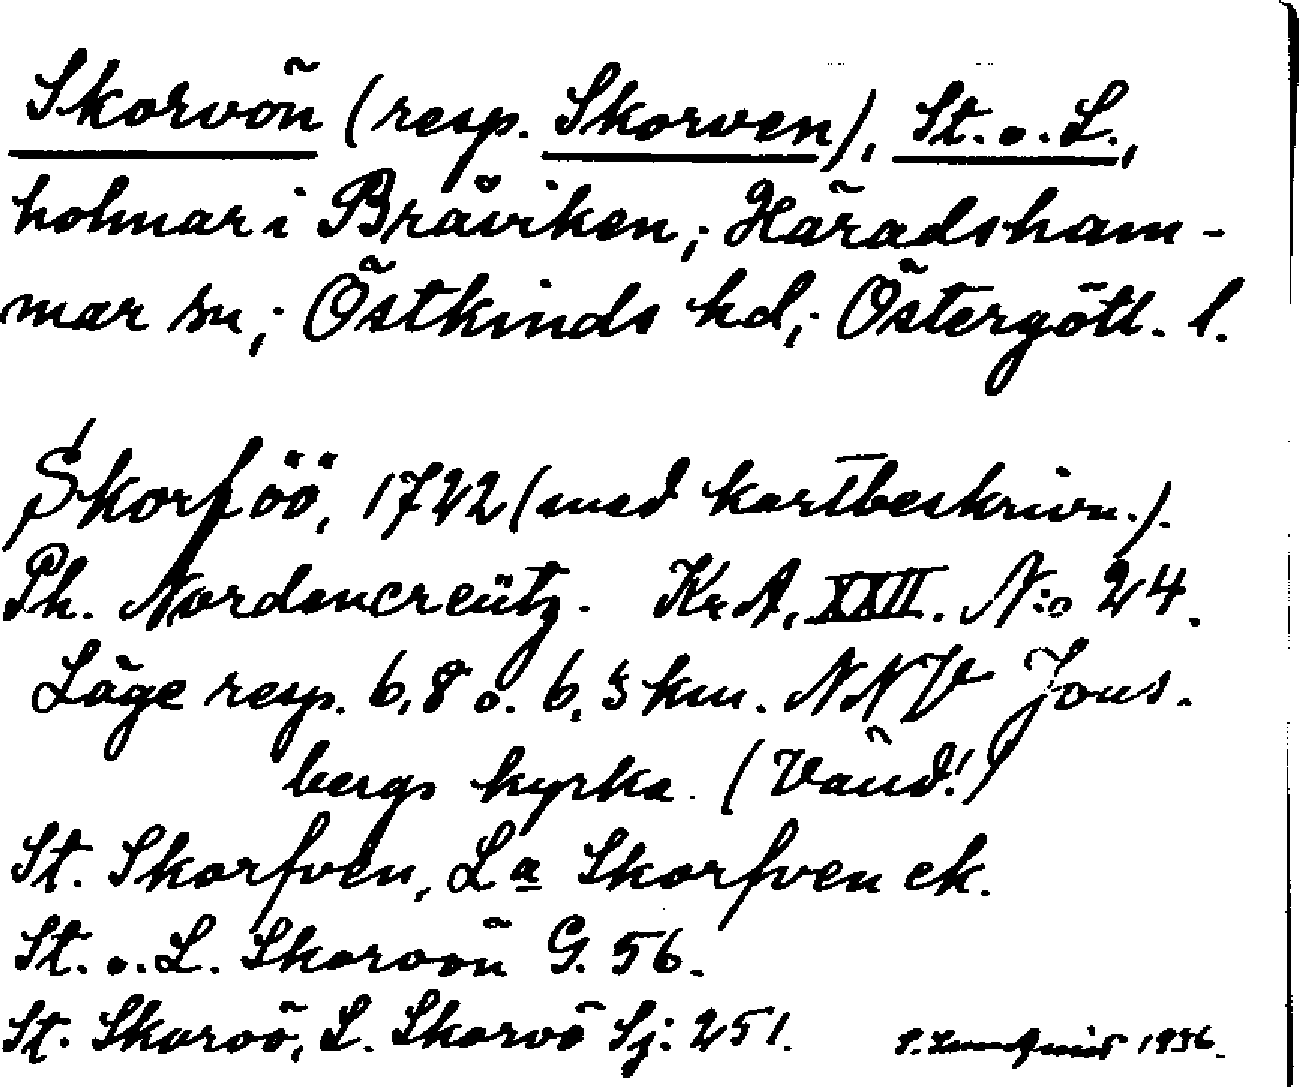 Skorvön (resp. Skorven), St. o. L.,
holmar i Bråviken; Häradsham-
mar sn; Östkinds hd; Östergötl. l.
Skorföö, 1722 (med kartbeskrivn.).
Ph. Nordencreütz. Kr. A. XXII. N:o 24.
Läge resp. 6,8 o. 6,5 km. NNV Jons-
bergs kyrka. (Vänd!)
St. Skorfven, La Skorfven ek.
St. o. L. Skorvön G. 56.
St. Skorvö, L. Skorvö Sj: 251.
1936.